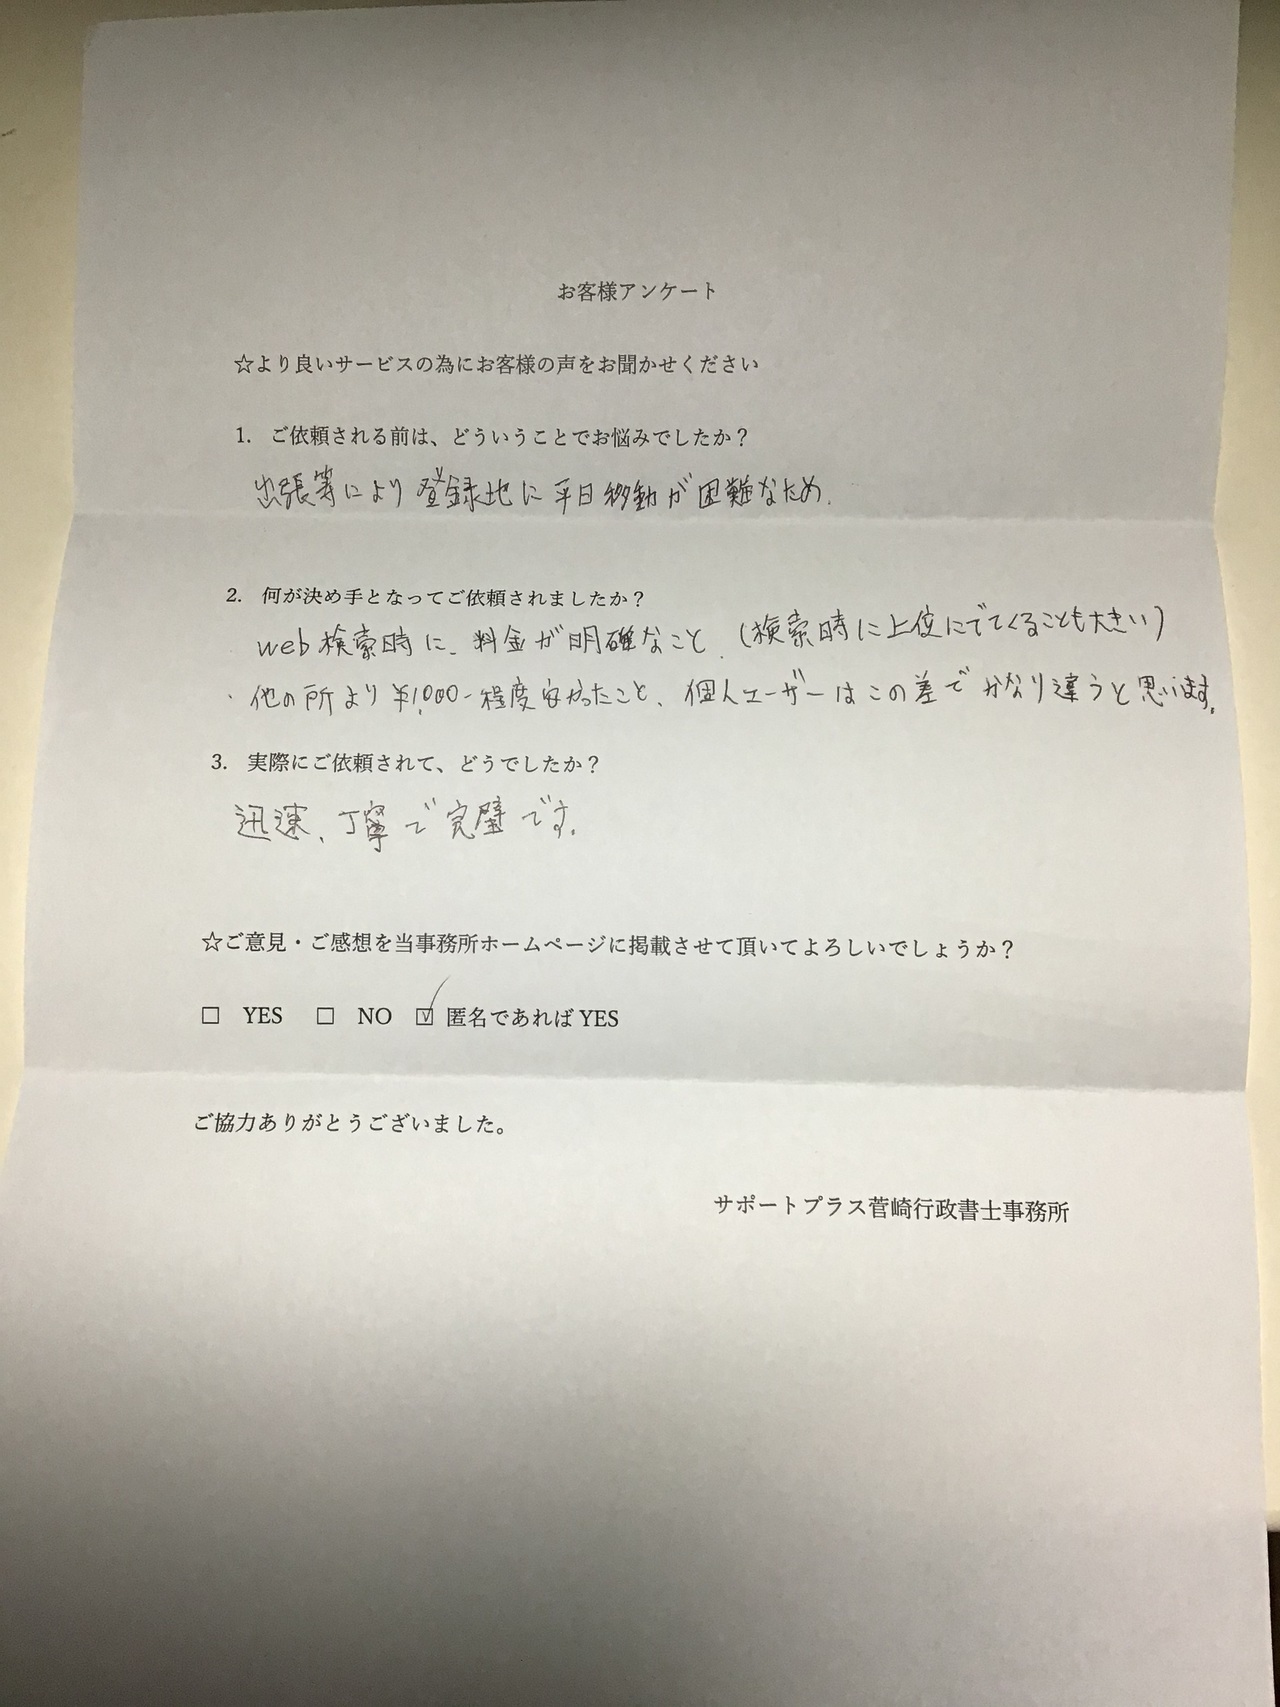 お客様アンケート
☆より良いサービスの為にお客様の声をお聞かせください
1. ご依頼される前は、どういうことでお悩みでしたか？
出張等により登録地に平日移動が困難なため.
2. 何が決め手となってご依頼されましたか？
web検索時に、料金が明確なこと.(検索時に上位にでてくることも大きい)
・他の所より¥1,000-程度安かったこと、個人ユーザーはこの差でかなり違うと思います。
3. 実際にご依頼されて、どうでしたか？
迅速、丁寧で完璧です。
☆ご意見・ご感想を当事務所ホームページに掲載させて頂いてよろしいでしょうか？
□ YES □ NO ☑ 匿名であれば YES
ご協力ありがとうございました。
サポートプラス菅崎行政書士事務所